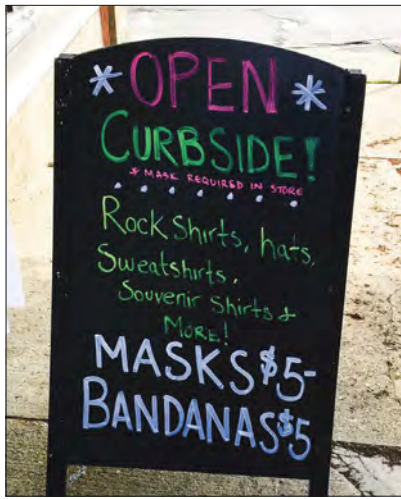 * OPEN *
CURBSIDE!
* MASK REQUIRED IN STORE
Rock Shirts, hats,
Sweatshirts,
Souvenir Shirts &
MORE!
MASKS $5-
BANDANAS $5